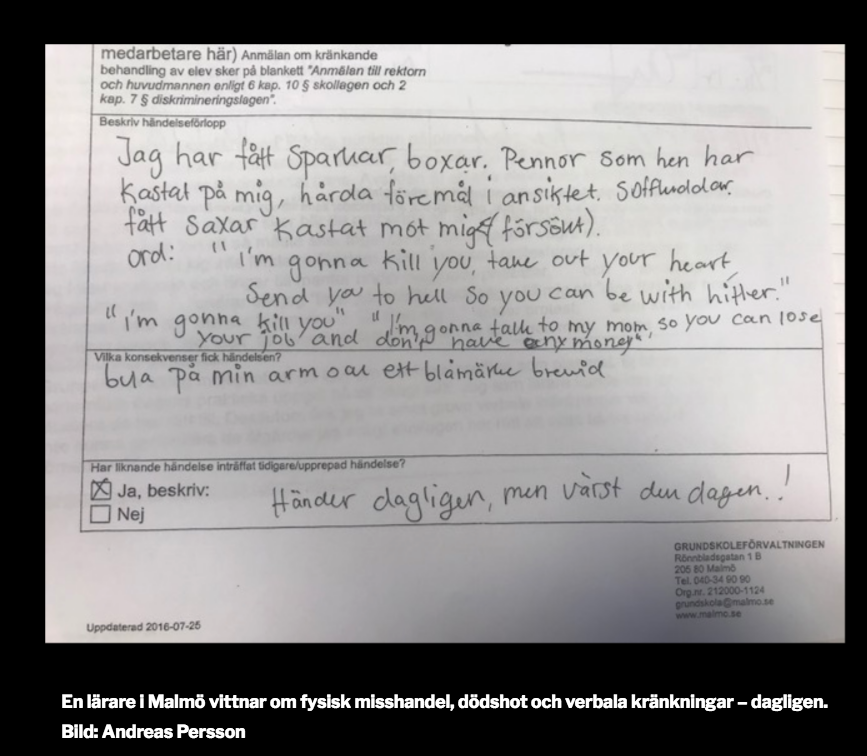 medarbetare här) Anmälan om kränkande
behandling av elev sker på blankett "Anmälan till rektorn
och huvudmannen enligt 6 kap. 10 § skollagen och 2
kap. 7 § diskrimineringslagen".
Beskriv händelseförlopp
Jag har fått Sparkar, boxar. Pennor som hen har
kastat på mig, hårda föremål i ansiktet. Soffkuddar.
fått saxar kastat mot mig (försökt).
ord: "i'm gonna kill you, take out your heart
Send ya to hell so you can be with hitler."
"i'm gonna kill you" "I'm gonna talk to my mom, so you can lose
your job and don't have any money"
Vilka konsekvenser fick händelsen?
bula på min arm och ett blåmärke bredvid
Har liknande händelse inträffat tidigare/upprepad händelse?
Ja, beskriv: Händer dagligen, men värst den dagen..!
Nej
GRUNDSKOLEFÖRVALTNINGEN
Rönnbladsgatan 1 B
205 80 Malmö
Tel. 040-34 90 90
Org.nr. 212000-1124
grundskola@malmo.se
www.malmo.se
Uppdaterad 2016-07-25
En lärare i Malmö vittnar om fysisk misshandel, dödshot och verbala kränkningar – dagligen.
Bild: Andreas Persson